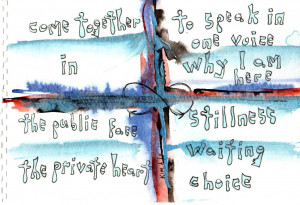 come together
in
the public face
the private heart
to speak in
one voice
why I am
here
stillness
waiting
choice